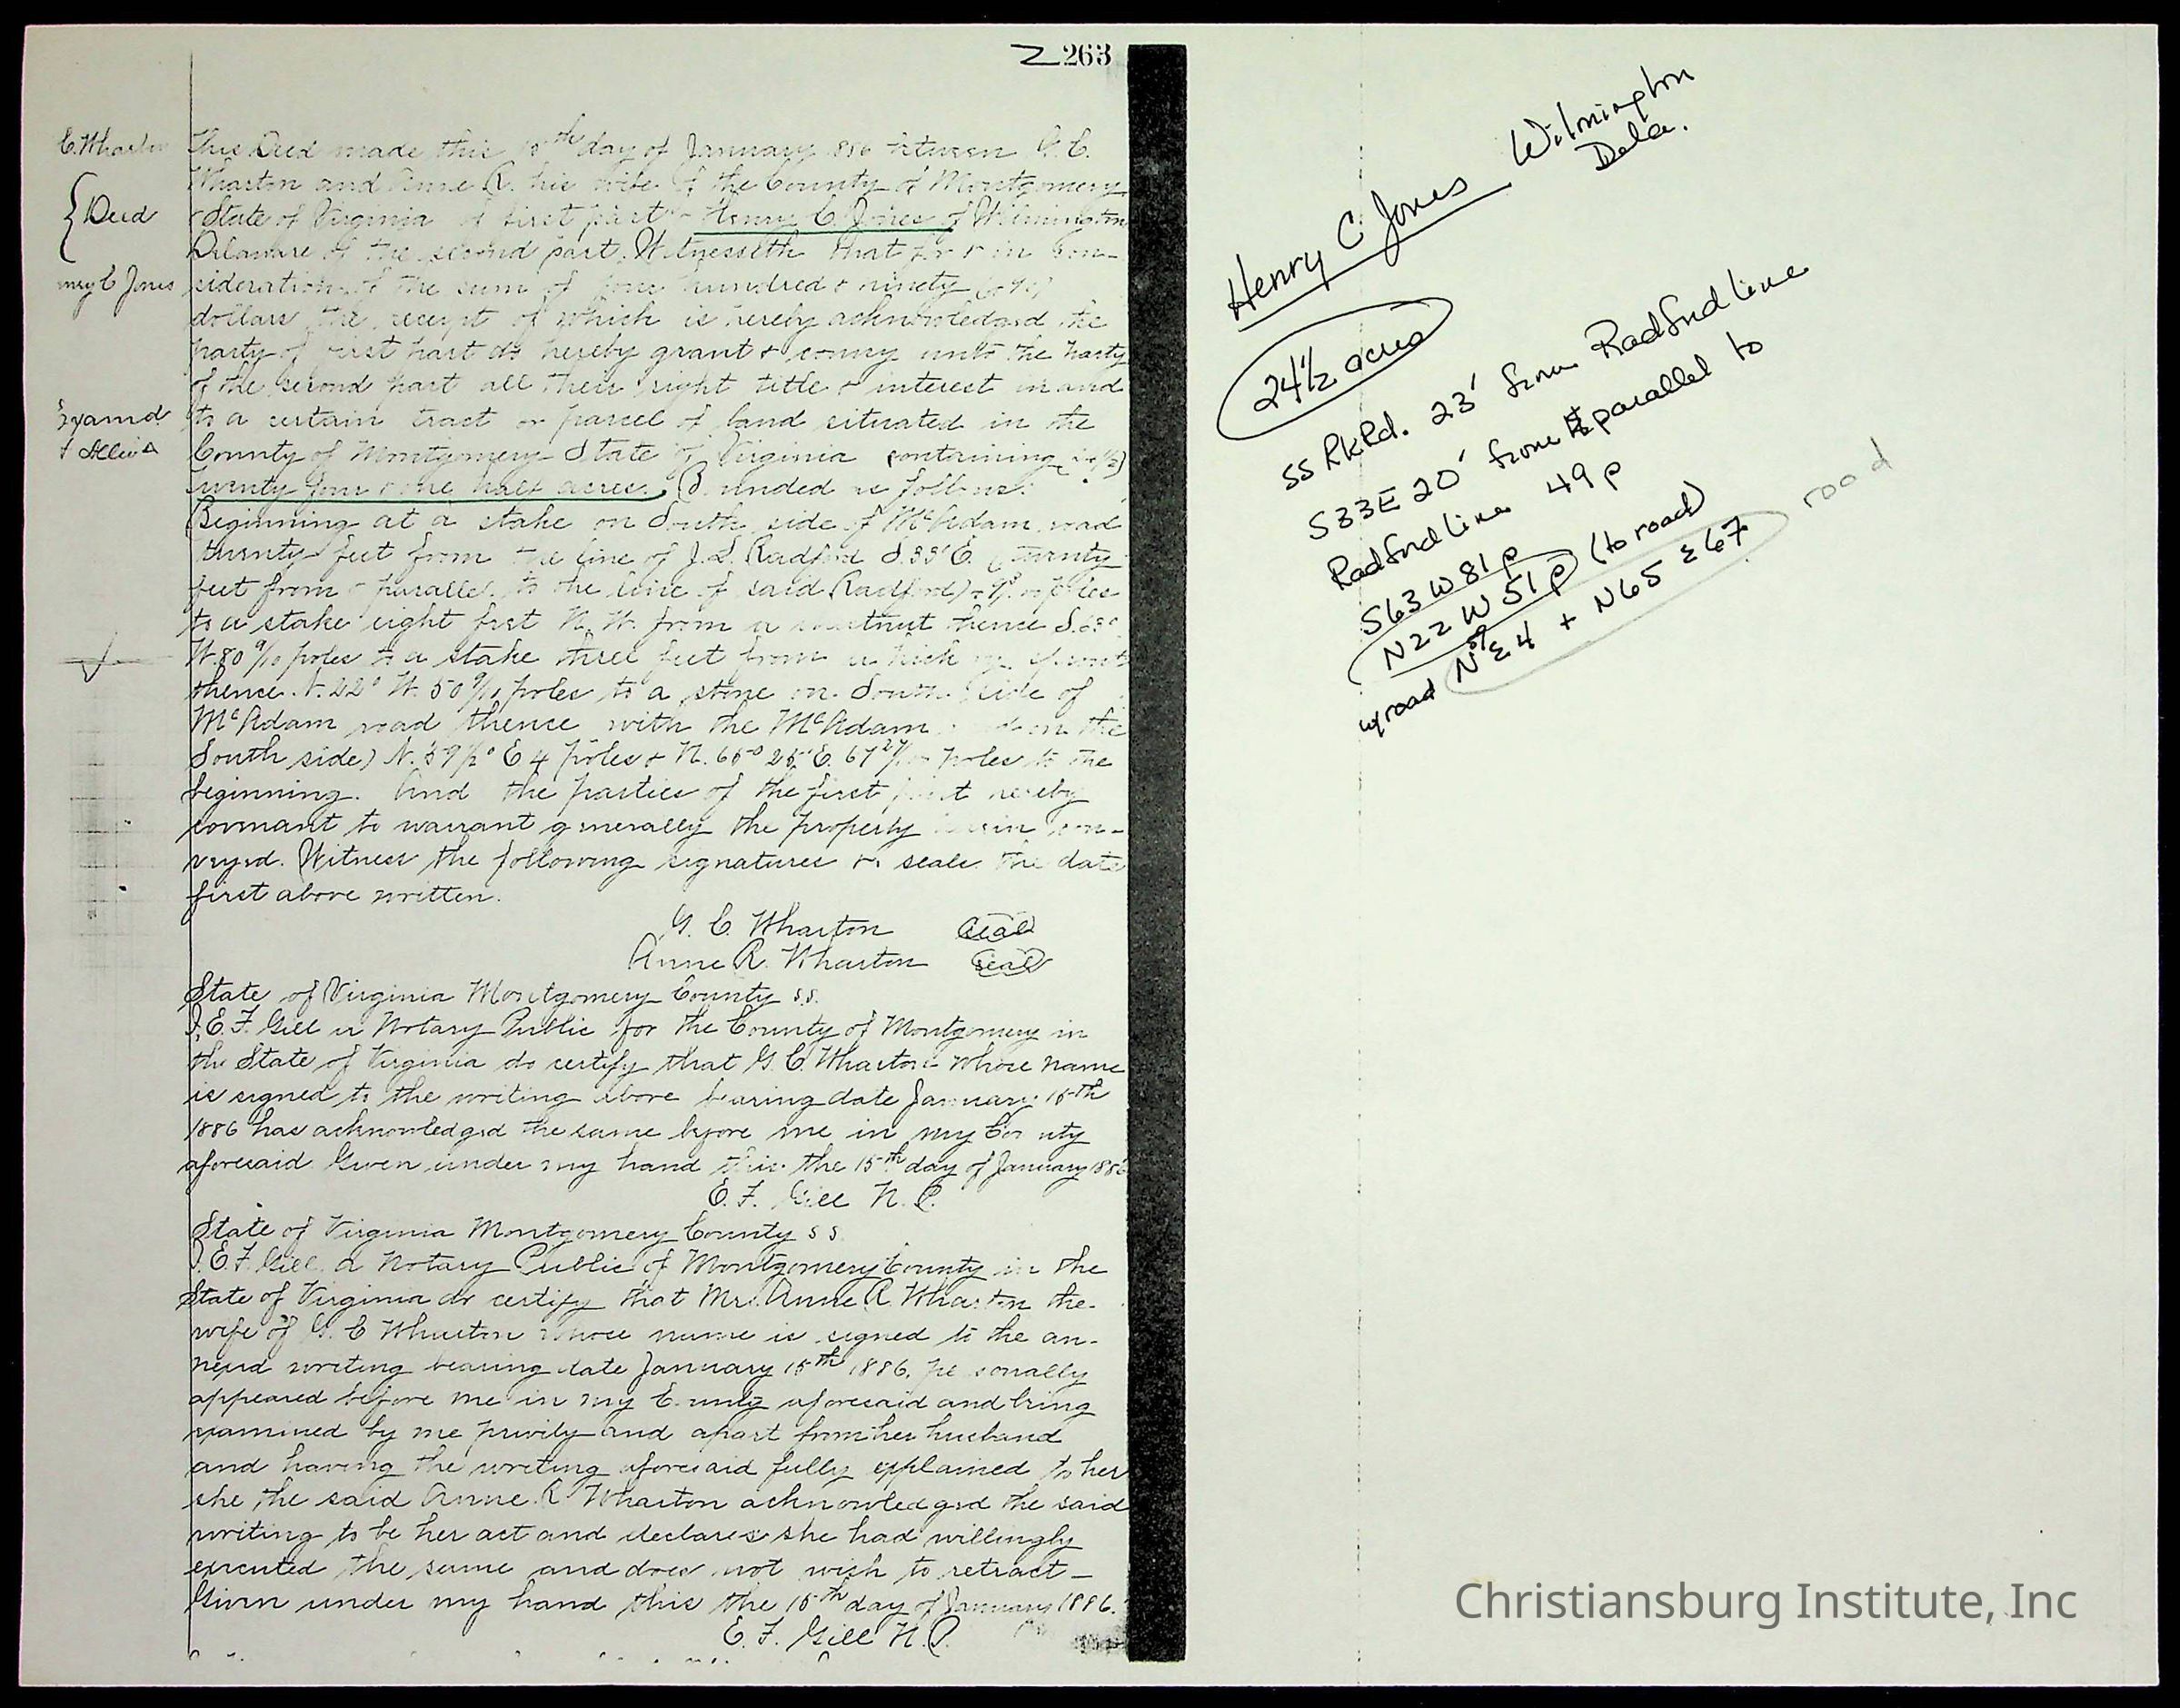 263
C. Wharton
{Deed
nry C Jones
This Deed made this 15th day of January 1886 between G. C.
Wharton and Anne R. his wife of the County of Montgomery
& State of Virginia of first part & Henry C. Jones of Wilmington
Delaware of the second part. Witnesseth that for & in con-
sideration of the sum of four hundred & ninety (490)
dollars the receipt of which is hereby acknowledged the
party of first part do hereby grant & convey unto the party
of the second part all their right title & interest in and
to a certain tract or parcel of land situated in the
County of Montgomery State of Virginia containing (24 1/2)
twenty four & one half acres. Bounded as follows:
Beginning at a stake on South side of McAdam road
twenty feet from the line of J. L. Radford S. 33° E. (twenty
feet from & parallel to the line of said Radford) poles
to a stake eight feet N. W. from a chestnut thence S. 63°
W. 80 9/10 poles to a stake three feet from a hickory sprout
thence N. 22° W. 50 9/10 poles to a stone on South side of
McAdam road thence with the McAdam on the
South side) N. 59 1/2° E 4 poles & N. 65° 25' E. 67 poles to the
beginning. And the parties of the first part hereby
covenant to warrant generally the property herein con-
veyed. Witness the following signatures & seals the date
first above written.
G. C. Wharton Seal
Anne R. Wharton Seal
State of Virginia Montgomery County s.s.
I, E. F. Gill a Notary Public for the County of Montgomery in
the State of Virginia do certify that G. C. Wharton whose name
is signed to the writing above bearing date January 15th
1886 has acknowledged the same before me in my County
aforesaid Given under my hand this the 15th day of January 1886
E. F. Gill N. P.
State of Virginia Montgomery County s s
I, E. F. Gill a Notary Public of Montgomery County in the
State of Virginia do certify that Mrs. Anne R. Wharton the
wife of G. C Wharton whose name is signed to the an-
nexed writing bearing date January 15th 1886, personally
appeared before me in my County aforesaid and being
examined by me privily and apart from her husband
and having the writing aforesaid fully explained to her
she the said Anne R Wharton acknowledged the said
writing to be her act and declares she had willingly
executed the same and does not wish to retract
Given under my hand this the 15th day of January 1886.
E. F. Gill N. P.
Henry C Jones Wilmington
Dela.
24 1/2 acres
SS RkRd. 23' from Radford line
S33E 20' from & parallel to
Radford line 49 p
S63W 81 p
N22W 51 p (to road)
w/road N59 E 4 + N65 E 67 road
Christiansburg Institute, Inc